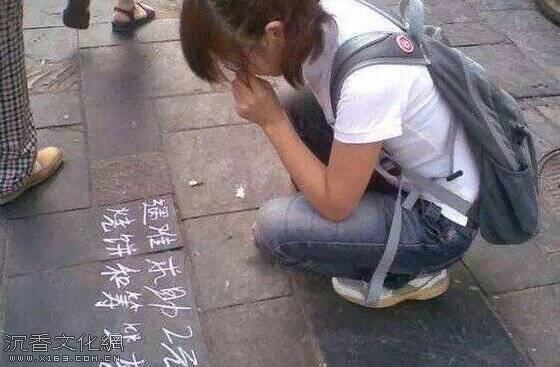 遇难求助2元
烧饼和筹
沉香文化網
www.x163.com.cn